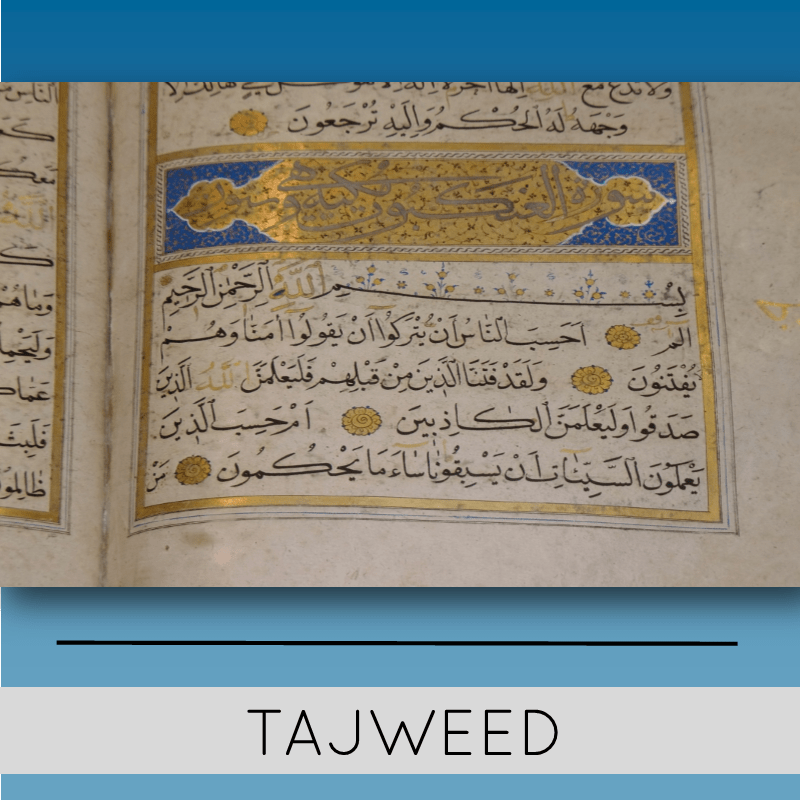 ولا تدع مع الله إلها آخر لا إله إلا هو كل شيء هالك إلا
وَجْهَهُ لَهُ الْحُكْمُ وَإِلَيْهِ تُرْجَعُونَ
سورة العنكبوت
بِسْمِ اللَّهِ الرَّحْمٰنِ الرَّحِيمِ
الم اَحَسِبَ النَّاسُ اَنْ يُتْرَكُوا اَنْ يَقُولُوا اٰمَنَّا وَهُمْ
يُفْتَنُونَ وَلَقَدْ فَتَنَّا الَّذِينَ مِنْ قَبْلِهِمْ فَلَيَعْلَمَنَّ اللَّهُ الَّذِينَ
صَدَقُوا وَلَيَعْلَمَنَّ الْكَاذِبِينَ اَمْ حَسِبَ الَّذِينَ
يَعْمَلُونَ السَّيِّئَاتِ اَنْ يَسْبِقُونَا سَاءَ مَا يَحْكُمُونَ مَنْ
TAJWEED